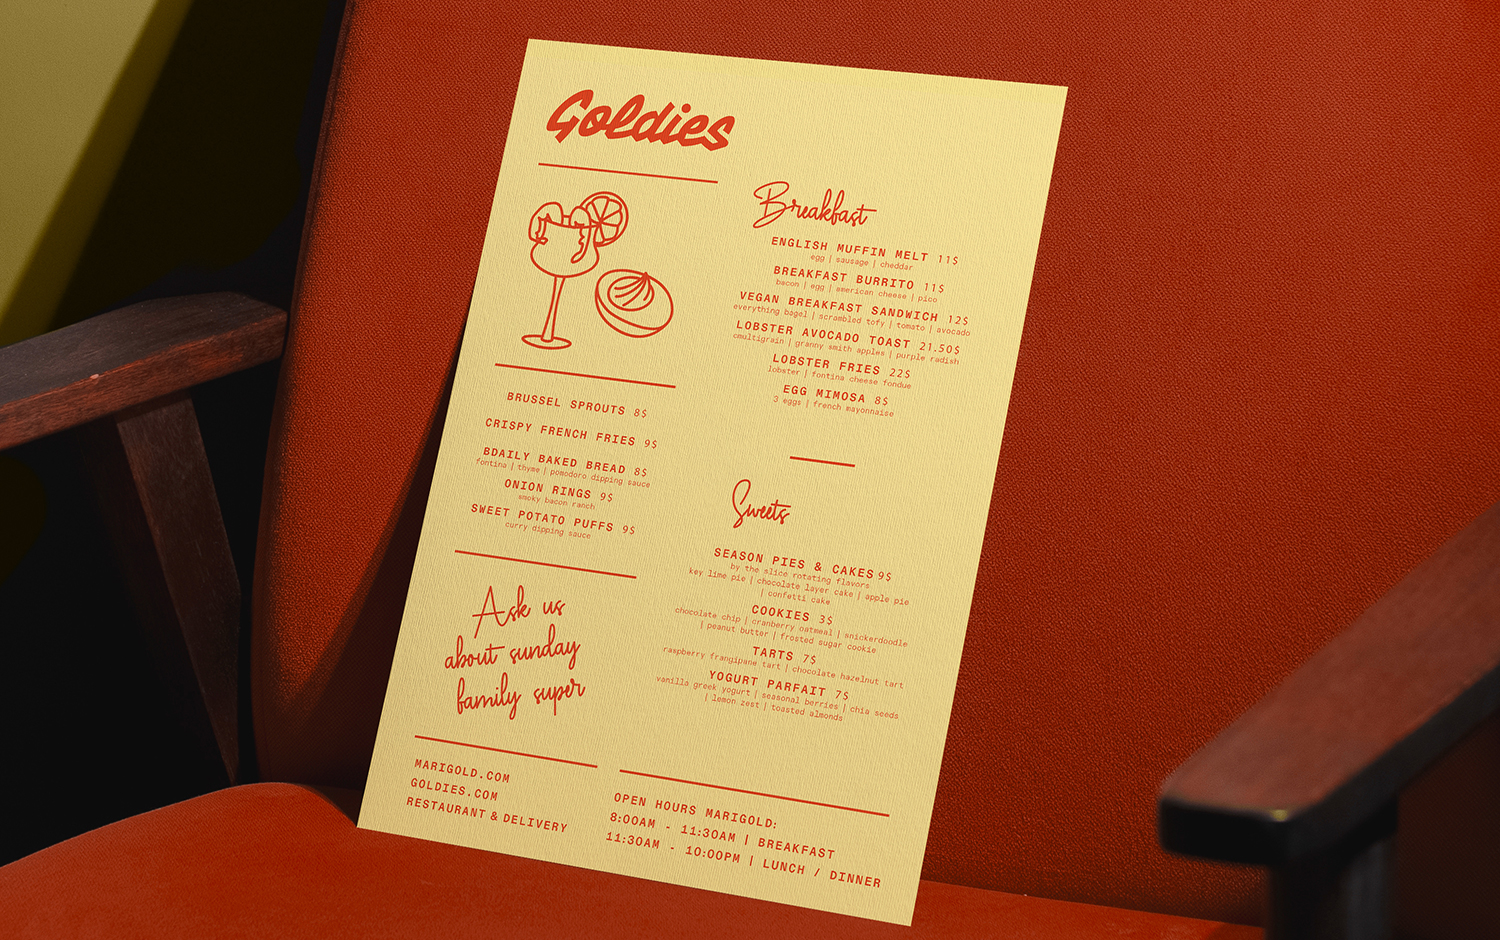 Goldies
BRUSSEL SPROUTS 8$
CRISPY FRENCH FRIES 9$
BDAILY BAKED BREAD 8$
fontina | thyme | pomodoro dipping sauce
ONION RINGS 9$
smoky bacon ranch
SWEET POTATO PUFFS 9$
curry dipping sauce
Ask us
about sunday
family super
MARIGOLD.COM
GOLDIES.COM
RESTAURANT & DELIVERY
Breakfast
ENGLISH MUFFIN MELT 11$
egg | sausage | cheddar
BREAKFAST BURRITO 11$
bacon | egg | american cheese | pico
VEGAN BREAKFAST SANDWICH 12$
everything bagel | scrambled tofy | tomato | avocado
LOBSTER AVOCADO TOAST 21.50$
cmultigrain | granny smith apples | purple radish
LOBSTER FRIES 22$
lobster | fontina cheese fondue
EGG MIMOSA 8$
3 eggs | french mayonnaise
Sweets
SEASON PIES & CAKES 9$
by the slice rotating flavors
key lime pie | chocolate layer cake | apple pie
| confetti cake
COOKIES 3$
chocolate chip | cranberry oatmeal | snickerdoodle
| peanut butter | frosted sugar cookie
TARTS 7$
raspberry frangipane tart | chocolate hazelnut tart
YOGURT PARFAIT 7$
vanilla greek yogurt | seasonal berries | chia seeds
| lemon zest | toasted almonds
OPEN HOURS MARIGOLD:
8:00AM - 11:30AM | BREAKFAST
11:30AM - 10:00PM | LUNCH / DINNER